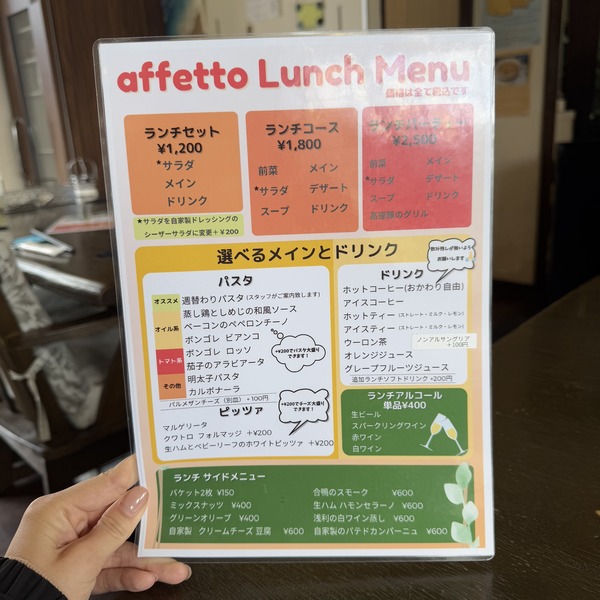 affetto Lunch Menu
価格は全て税込です
ランチセット
¥1,200
*サラダ
メイン
ドリンク
*サラダを自家製ドレッシングの
シーザーサラダに変更+¥200
ランチコース
¥1,800
前菜 メイン
*サラダ デザート
スープ ドリンク
¥2,500
前菜 メイン
*サラダ デザート
スープ ドリンク
選べるメインとドリンク
パスタ
オススメ 週替わりパスタ (スタッフがご案内致します)
蒸し鶏としめじの和風ソース
オイル系 ベーコンのペペロンチーノ
ボンゴレ ビアンコ
ボンゴレ ロッソ
トマト系 茄子のアラビアータ
明太子パスタ
その他 カルボナーラ
パルメザンチーズ(別皿) +100円
+¥200でパスタ大盛り
できます!
ピッツァ
マルゲリータ
クワトロ フォルマッジ +¥200
生ハムとベビーリーフのホワイトピッツァ +¥200
+¥200でチーズ大盛り
できます!
飲み残しが無いよう
お願いします。
ドリンク
ホットコーヒー(おかわり自由)
アイスコーヒー
ホットティー (ストレート・ミルク・レモン)
アイスティー (ストレート・ミルク・レモン)
ウーロン茶
ノンアルサングリア
+100円
オレンジジュース
グレープフルーツジュース
追加ランチソフトドリンク +200円
ランチアルコール
単品¥400
生ビール
スパークリングワイン
赤ワイン
白ワイン
ランチ サイドメニュー
バケット2枚 ¥150
ミックスナッツ ¥400
グリーンオリーブ ¥400
自家製 クリームチーズ 豆腐 ¥600
合鴨のスモーク ¥600
生ハム ハモンセラーノ ¥600
浅利の白ワイン蒸し ¥600
自家製のパテドカンパーニュ ¥600